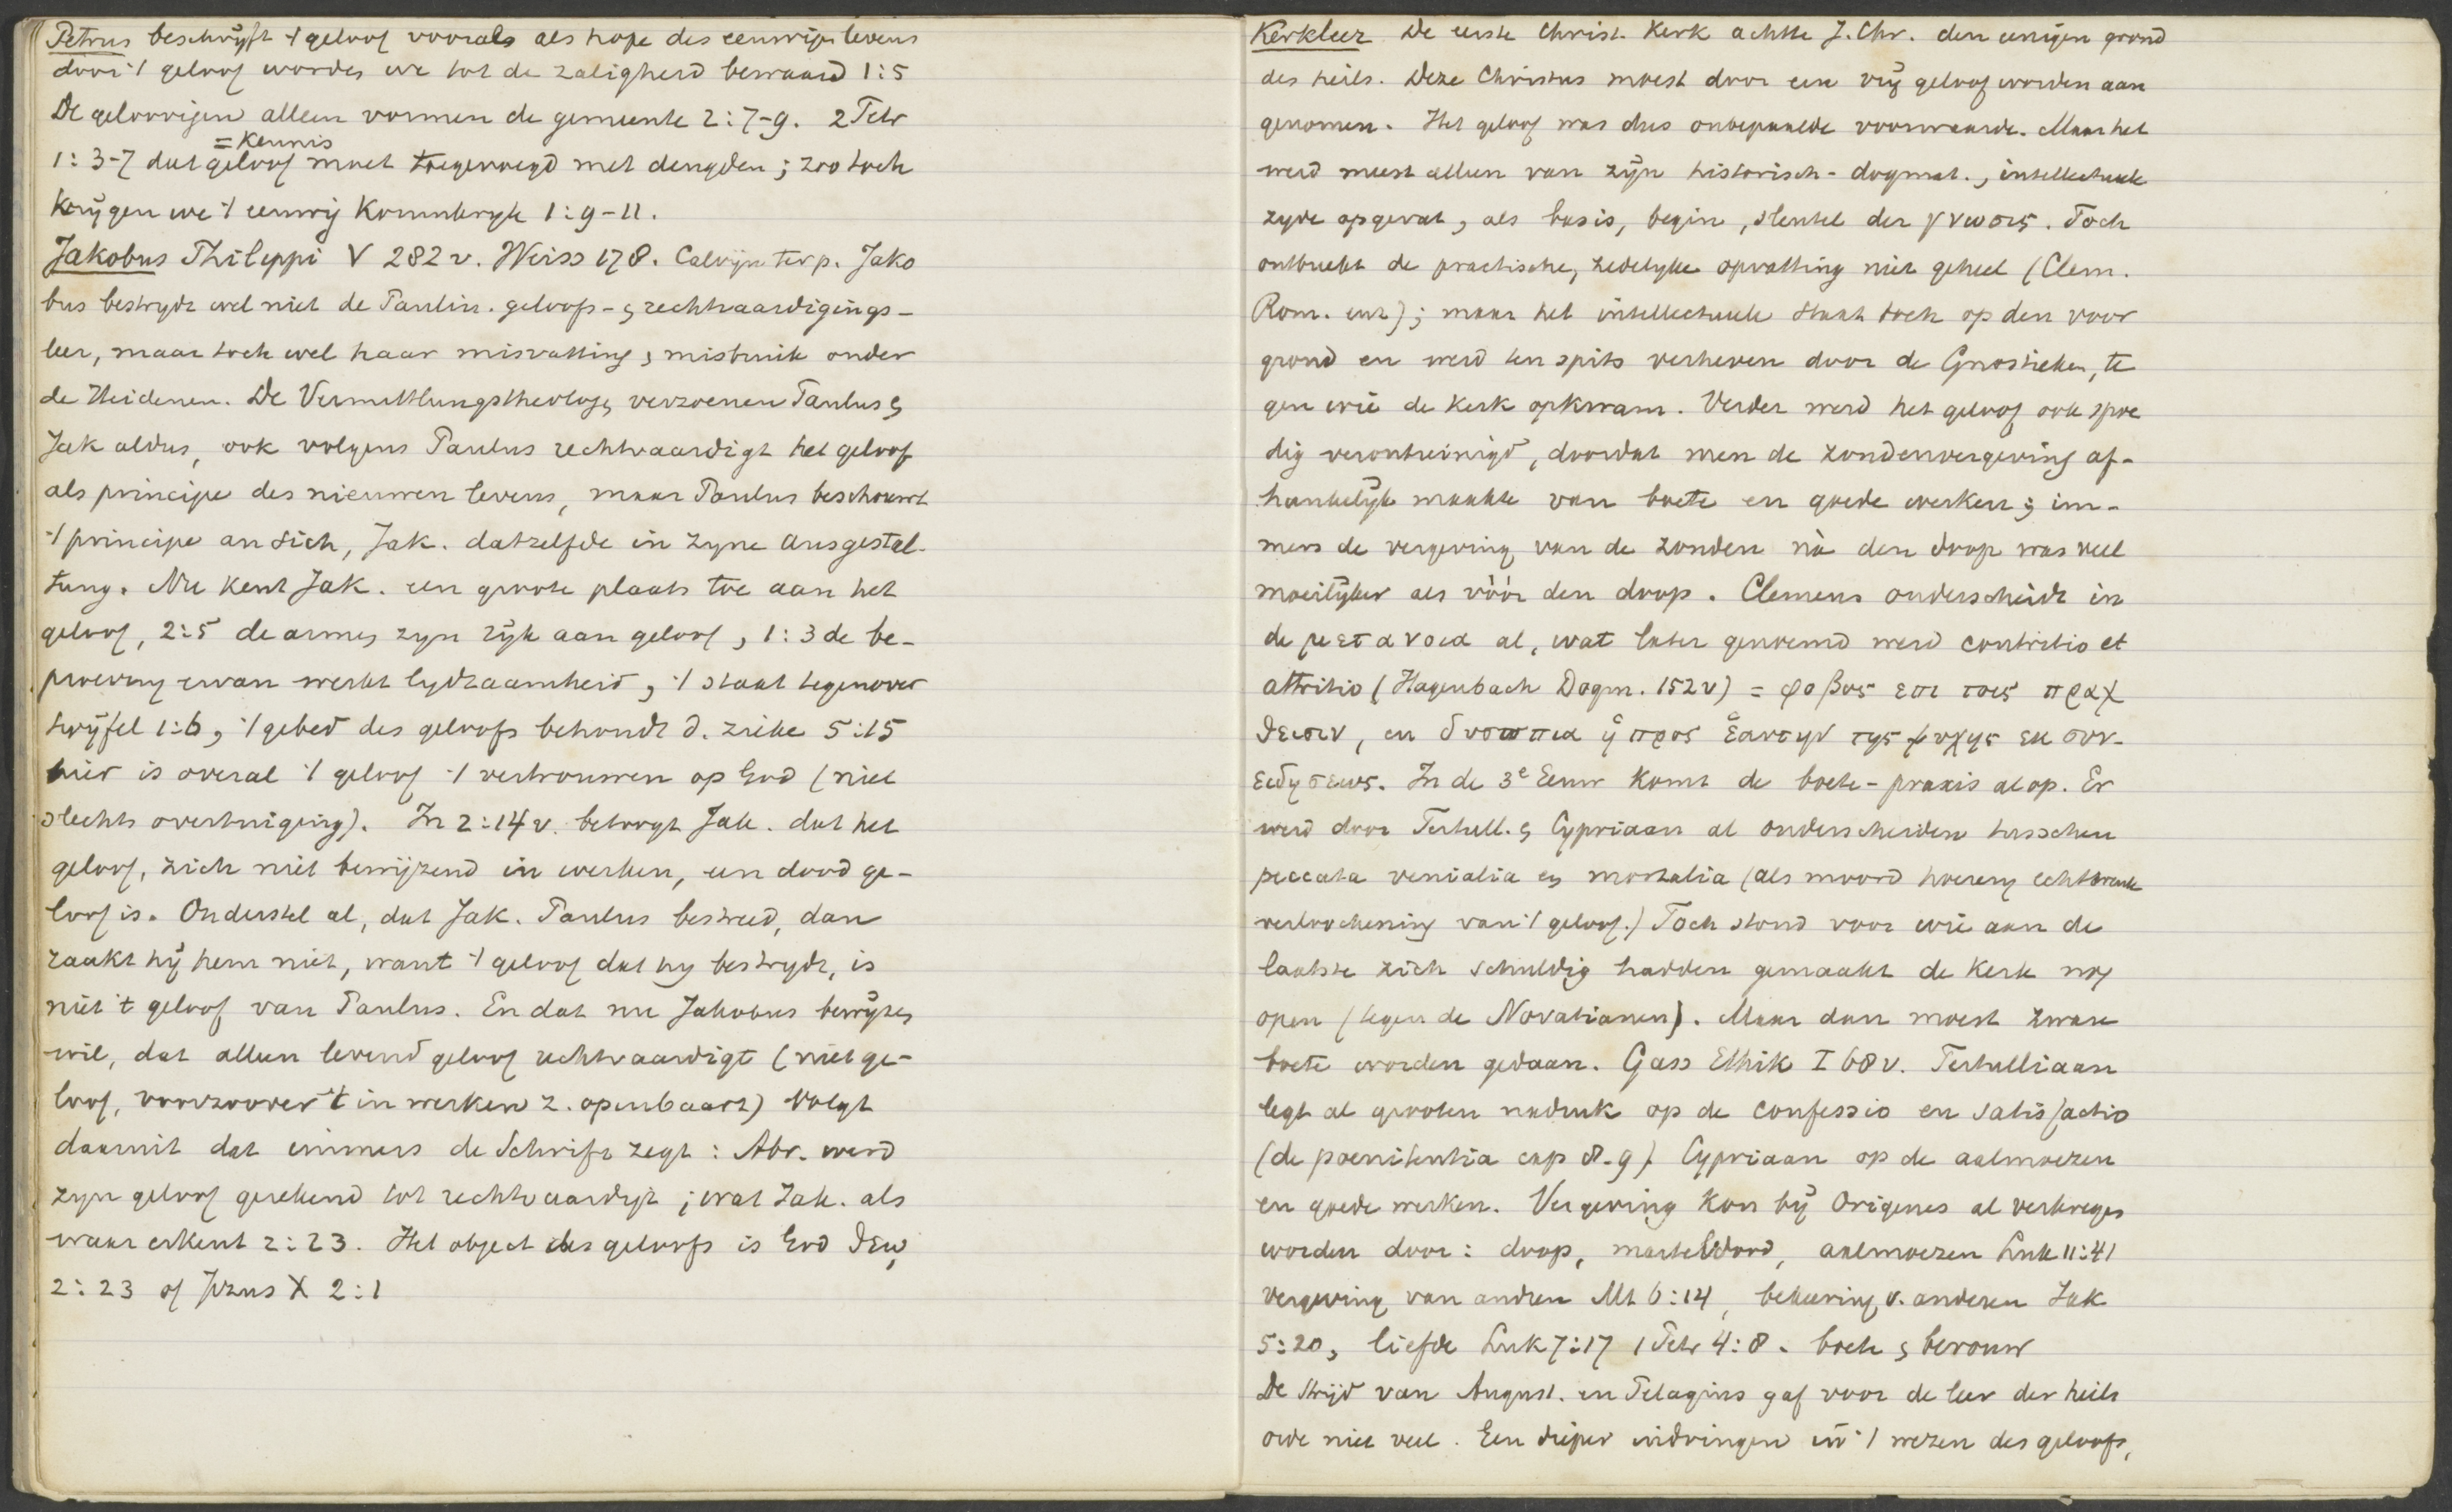 Petrus beschrijft 't geloof vooral als hope des eeuwigen levens
door 't geloof worden we tot de zaligheid bewaard 1:5
De geloovigen alleen vormen de gemeente 2:7-9. 2 Petr
= Kennis
1:3-7 dat geloof moet toegevoegd met deugden; zoo toch
krijgen we 't eeuwig Koninkrijk 1:9-11.
Jakobus Philippi V 282 v. Weiss 178. Calvijn ter p. Jako
bus bestrydt wel niet de Paulin. geloofs- en rechtvaardigings-
leer, maar toch wel haar misvatting en misbruik onder
de Heidenen. De Vermittlungstheologen verzoenen Paulus en
Jak aldus, ook volgens Paulus rechtvaardigt het geloof
als principe des nieuwen levens, maar Paulus beschouwt
't principe an sich, Jak. datzelfde in zyne Ausgestal-
tung. Nu kent Jak. een groote plaats toe aan het
geloof, 2:5 de armen zyn rijk aan geloof, 1:3 de be-
proeving ervan werkt lydzaamheid, 't staat tegenover
twijfel 1:6, 't gebed des geloofs behoudt d. zieke 5:15
hier is overal 't geloof 't vertrouwen op God (niet
slechts overtuiging). In 2:14 v. betoogt Jak. dat het
geloof, zich niet bewijzend in werken, een dood ge-
loof is. Onderstel al, dat Jak. Paulus bestreed, dan
raakt hij hem niet, want 't geloof dat hy bestrydt, is
niet 't geloof van Paulus. En dat nu Jakobus bewijzen
wil, dat alleen levend geloof rechtvaardigt (niet ge-
loof, voorzoover 't in werken z. openbaart) volgt
daaruit dat immers de Schrift zegt: Abr. werd
zyn geloof gerekend tot rechtvaardigh; wat Jak. als
waar erkent 2:23. Het object des geloofs is God θεω,
2:23 of Jezus X 2:1
Kerkleer De eerste Christ. Kerk achtte J. Chr. den eenigen grond
des heils. Deze Christus moest door een vrij geloof worden aan
genomen. Het geloof was dus onbepaalde voorwaarde. Maar het
werd meest alleen van zijn historisch-dogmat., intellectueele
zyde opgevat, als basis, begin, sleutel der γνωσις. Toch
ontbreekt de practische, zedelyke opvatting niet geheel (Clem.
Rom. enz); maar het intellectueele staat toch op den voor
grond en werd ten spits verheven door de Gnostieken, te
gen wie de Kerk opkwam. Verder werd het geloof ook spoe
dig verontreinigd, doordat men de zondenvergeving af-
hankelijk maakte van boete en goede werken; im-
mers de vergeving van de zonden nà den doop was veel
moeilijker als vòòr den doop. Clemens onderscheidt in
de μετανοια al, wat later genoemd werd contritio et
attritio (Hagenbach Dogm. 152 v) = φοβος επι τοις πραχ
θεισιν, en δυσωπια ἡ προς ἑαυτην της ψυχης εκ συν-
ειδησεως. In de 3e Eeuw komt de boete-praxis al op. Er
werd door Tertull. en Cypriaan al onderscheiden tusschen
peccata venialia en mortalia (als moord hoererij echtbreuk
verloochening van 't geloof.) Toch stond voor wie aan de
laatste zich schuldig hadden gemaakt de Kerk nog
open (tegen de Novatianen). Maar dan moest zware
boete worden gedaan. Gass Ethik I 68 v. Tertulliaan
legt al grooten nadruk op de confessio en satisfactio
(de poenitentia cap 8-9). Cypriaan op de aalmoezen
en goede werken. Vergeving kon bij Origenes al verkregen
worden door: doop, marteldood, aalmoezen Luk 11:41
vergeving van andren Mt 6:14, bekeering v. anderen Jak
5:20, liefde Luk 7:17 1 Petr 4:8. boete en berouw
De strijd van August. en Pelagius gaf voor de leer der heils
orde niet veel. Een dieper indringen in 't wezen des geloofs,